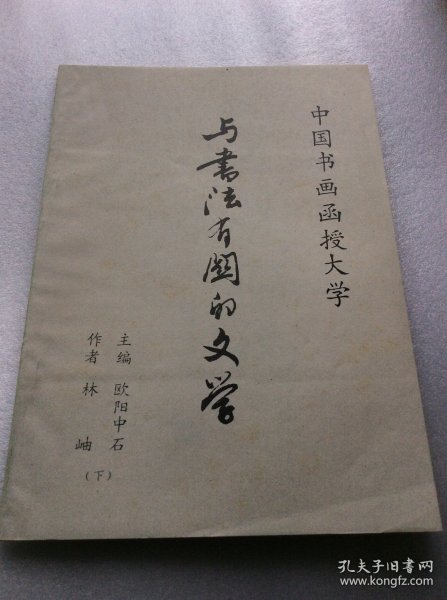 中国书画函授大学
与書法有關的文学
主编 欧阳中石
作者 林岫
（下）
孔夫子旧书网
www.kongfz.com